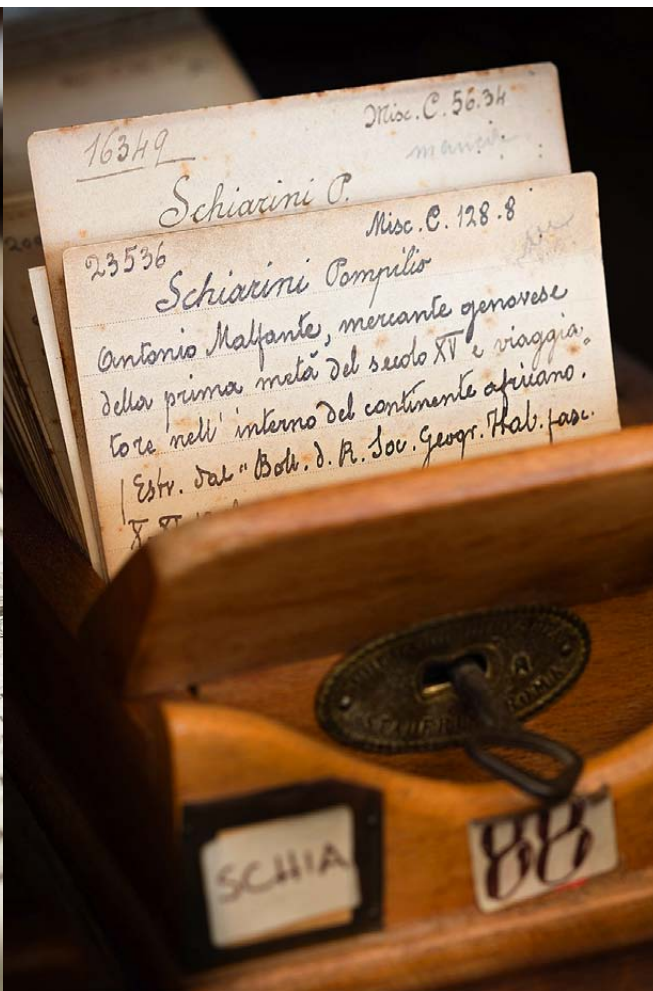 16349
Misc. C. 56.34
Schiarini P.
23536
Misc. C. 128.8
Schiarini Pompilio
Antonio Malfante, mercante genovese
della prima metà del secolo XV e viaggia-
tore nell' interno del continente africano.
Estr. dal "Boll. d. R. Soc. Geogr. Ital. fasc.
SCHIA
88